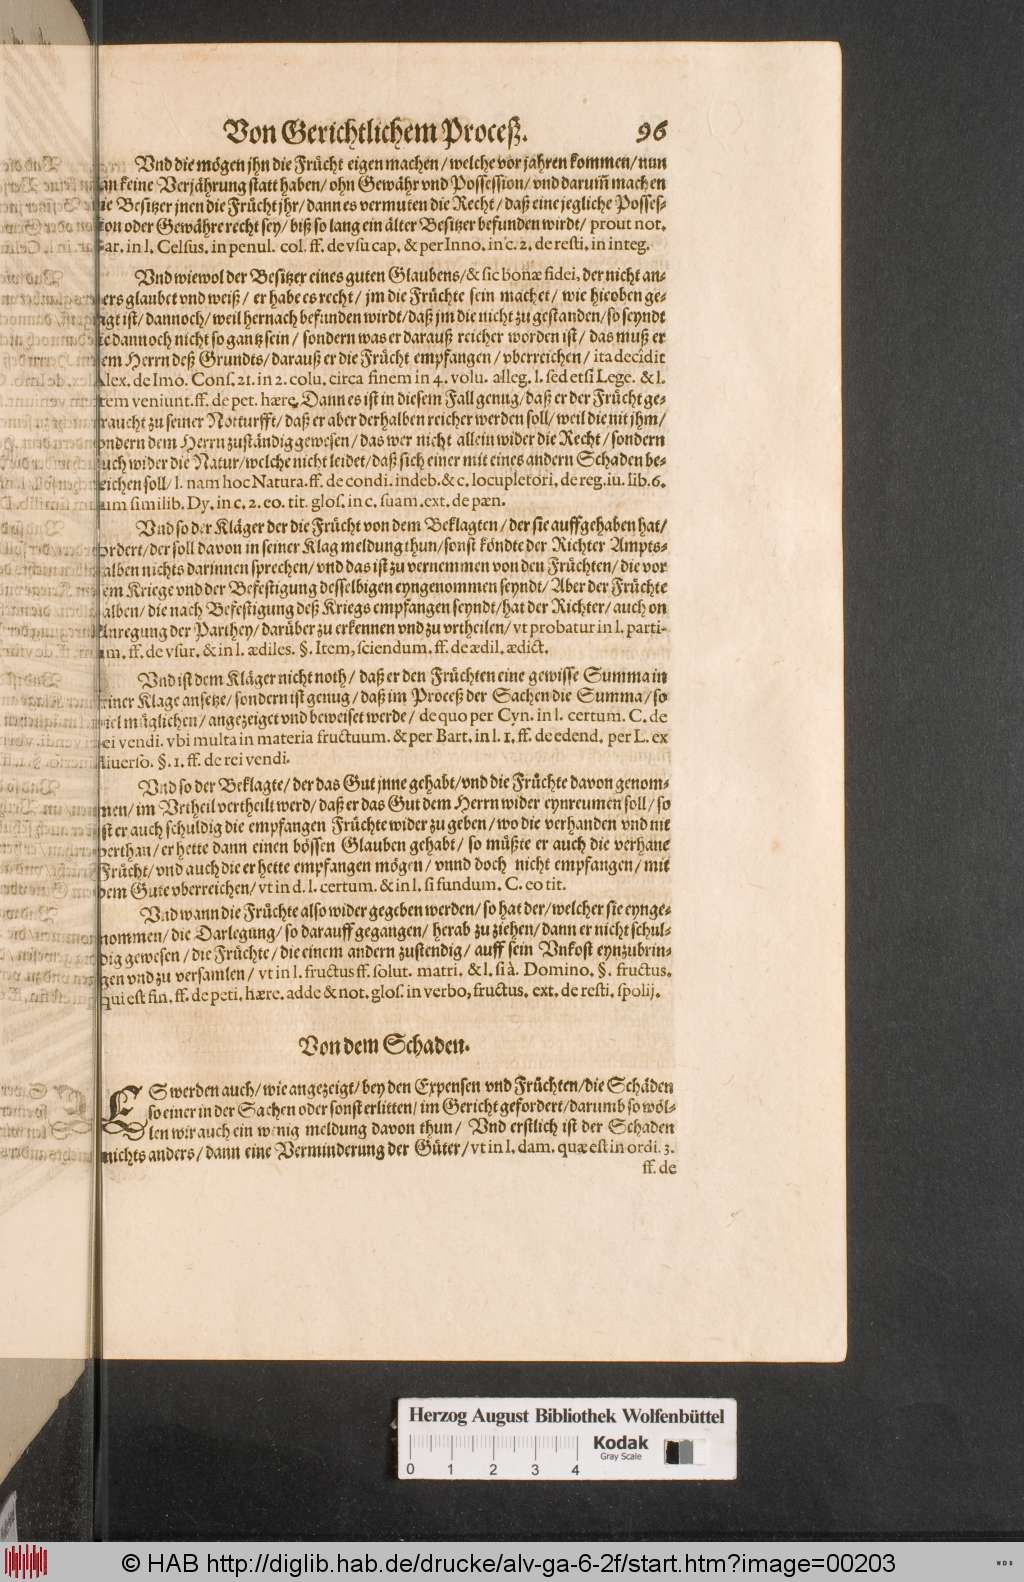 Von Gerichtlichem Proceß. 96
Vnd die mögen jhn die Frücht eigen machen / welche vor jahren kommen / nun
an keine Verjährung statt haben / ohn Gewähr vnd Possession / vnd darum̃ machen
ie Besitzer jnen die Frücht jhr / dann es vermuten die Recht / daß eine jegliche Posses-
ion oder Gewähre recht sey / biß so lang ein älter Besitzer befunden wirdt / prout not.
ar. in l. Celsus. in penul. col. ff. de vsu cap. & per Inno. in c. 2. de resti. in integ.
Vnd wiewol der Besitzer eines guten Glaubens / & sic bonæ fidei, der nicht an-
ers glaubet vnd weiß / er habe es recht / jm die Früchte sein machet / wie hieoben ge-
agt ist / dannoch / weil hernach befunden wirdt / daß jm die nicht zu gestanden / so seyndt
ie dannoch nicht so gantz sein / sondern was er darauß reicher worden ist / das muß er
em Herrn deß Grundts / darauß er die Frücht empfangen / vberreichen / ita decidit
Alex. de Imo. Cons. 21. in 2. colu. circa finem in 4. volu. alleg. l. sed etsi Lege. & l.
tem veniunt. ff. de pet. hære. Dann es ist in diesem Fall genug / daß er der Frücht ge-
raucht zu seiner Notturfft / daß er aber derhalben reicher werden soll / weil die nit jhm /
ondern dem Herrn zuständig gewesen / das wer nicht allein wider die Recht / sondern
uch wider die Natur / welche nicht leidet / daß sich einer mit eines andern Schaden be-
eichen soll / l. nam hoc Natura. ff. de condi. indeb. & c. locupletori. de reg. iu. lib. 6.
um similib. Dy. in c. 2. eo. tit. glos. in c. suam. ext. de pæn.
Vnd so der Kläger der die Frücht von dem Beklagten / der sie auffgehaben hat /
ordert / der soll davon in seiner Klag meldung thun / sonst köndte der Richter Ampts-
alben nichts darinnen sprechen / vnd das ist zu vernemmen von den Früchten / die vor
em Kriege vnd der Befestigung desselbigen eyngenommen seyndt / Aber der Früchte
alben / die nach Befestigung deß Kriegs empfangen seyndt / hat der Richter / auch on
Anregung der Parthey / darüber zu erkennen vnd zu vrtheilen / vt probatur in l. parti-
um. ff. de vsur. & in l. ædiles. §. Item, sciendum. ff. de ædil. ædict.
Vnd ist dem Kläger nicht noth / daß er den Früchten eine gewisse Summa in
einer Klage ansetze / sondern ist genug / daß im Proceß der Sachen die Summa / so
iel müglichen / angezeiget vnd beweiset werde / de quo per Cyn. in l. certum. C. de
ei vendi. vbi multa in materia fructuum. & per Bart. in l. 1. ff. de edend. per L. ex
diuerso. §. 1. ff. de rei vendi.
Vnd so der Beklagte / der das Gut jnne gehabt / vnd die Früchte davon genom-
men / im Vrtheil vertheilt werd / daß er das Gut dem Herrn wider eynreumen soll / so
ist er auch schuldig die empfangen Früchte wider zu geben / wo die verhanden vnd nit
verthan / er hette dann einen bössen Glauben gehabt / so müßte er auch die verthane
Frücht / vnd auch die er hette empfangen mögen / vnnd doch nicht empfangen / mit
dem Gute vberreichen / vt in d. l. certum. & in l. si fundum. C. eo tit.
Vnd wann die Früchte also wider gegeben werden / so hat der / welcher sie eynge-
nommen / die Darlegung / so darauff gegangen / herab zu ziehen / dann er nicht schul-
dig gewesen / die Früchte / die einem andern zustendig / auff sein Vnkost eynzubrin-
gen vnd zu versamlen / vt in l. fructus ff. solut. matri. & l. si à. Domino. §. fructus.
qui est fin. ff. de peti. hære. adde & not. glos. in verbo, fructus. ext. de resti. spolij.
Von dem Schaden.
ES werden auch / wie angezeigt / bey den Expensen vnd Früchten / die Schäden
so einer in der Sachen oder sonst erlitten / im Gericht gefordert / darumb so wöl-
len wir auch ein wenig meldung davon thun / Vnd erstlich ist der Schaden
nichts anders / dann eine Verminderung der Güter / vt in l. dam. quæ est in ordi. 3.
ff. de
Herzog August Bibliothek Wolfenbüttel
0 1 2 3 4
Kodak
Gray Scale
© HAB http://diglib.hab.de/drucke/alv-ga-6-2f/start.htm?image=00203
WDB